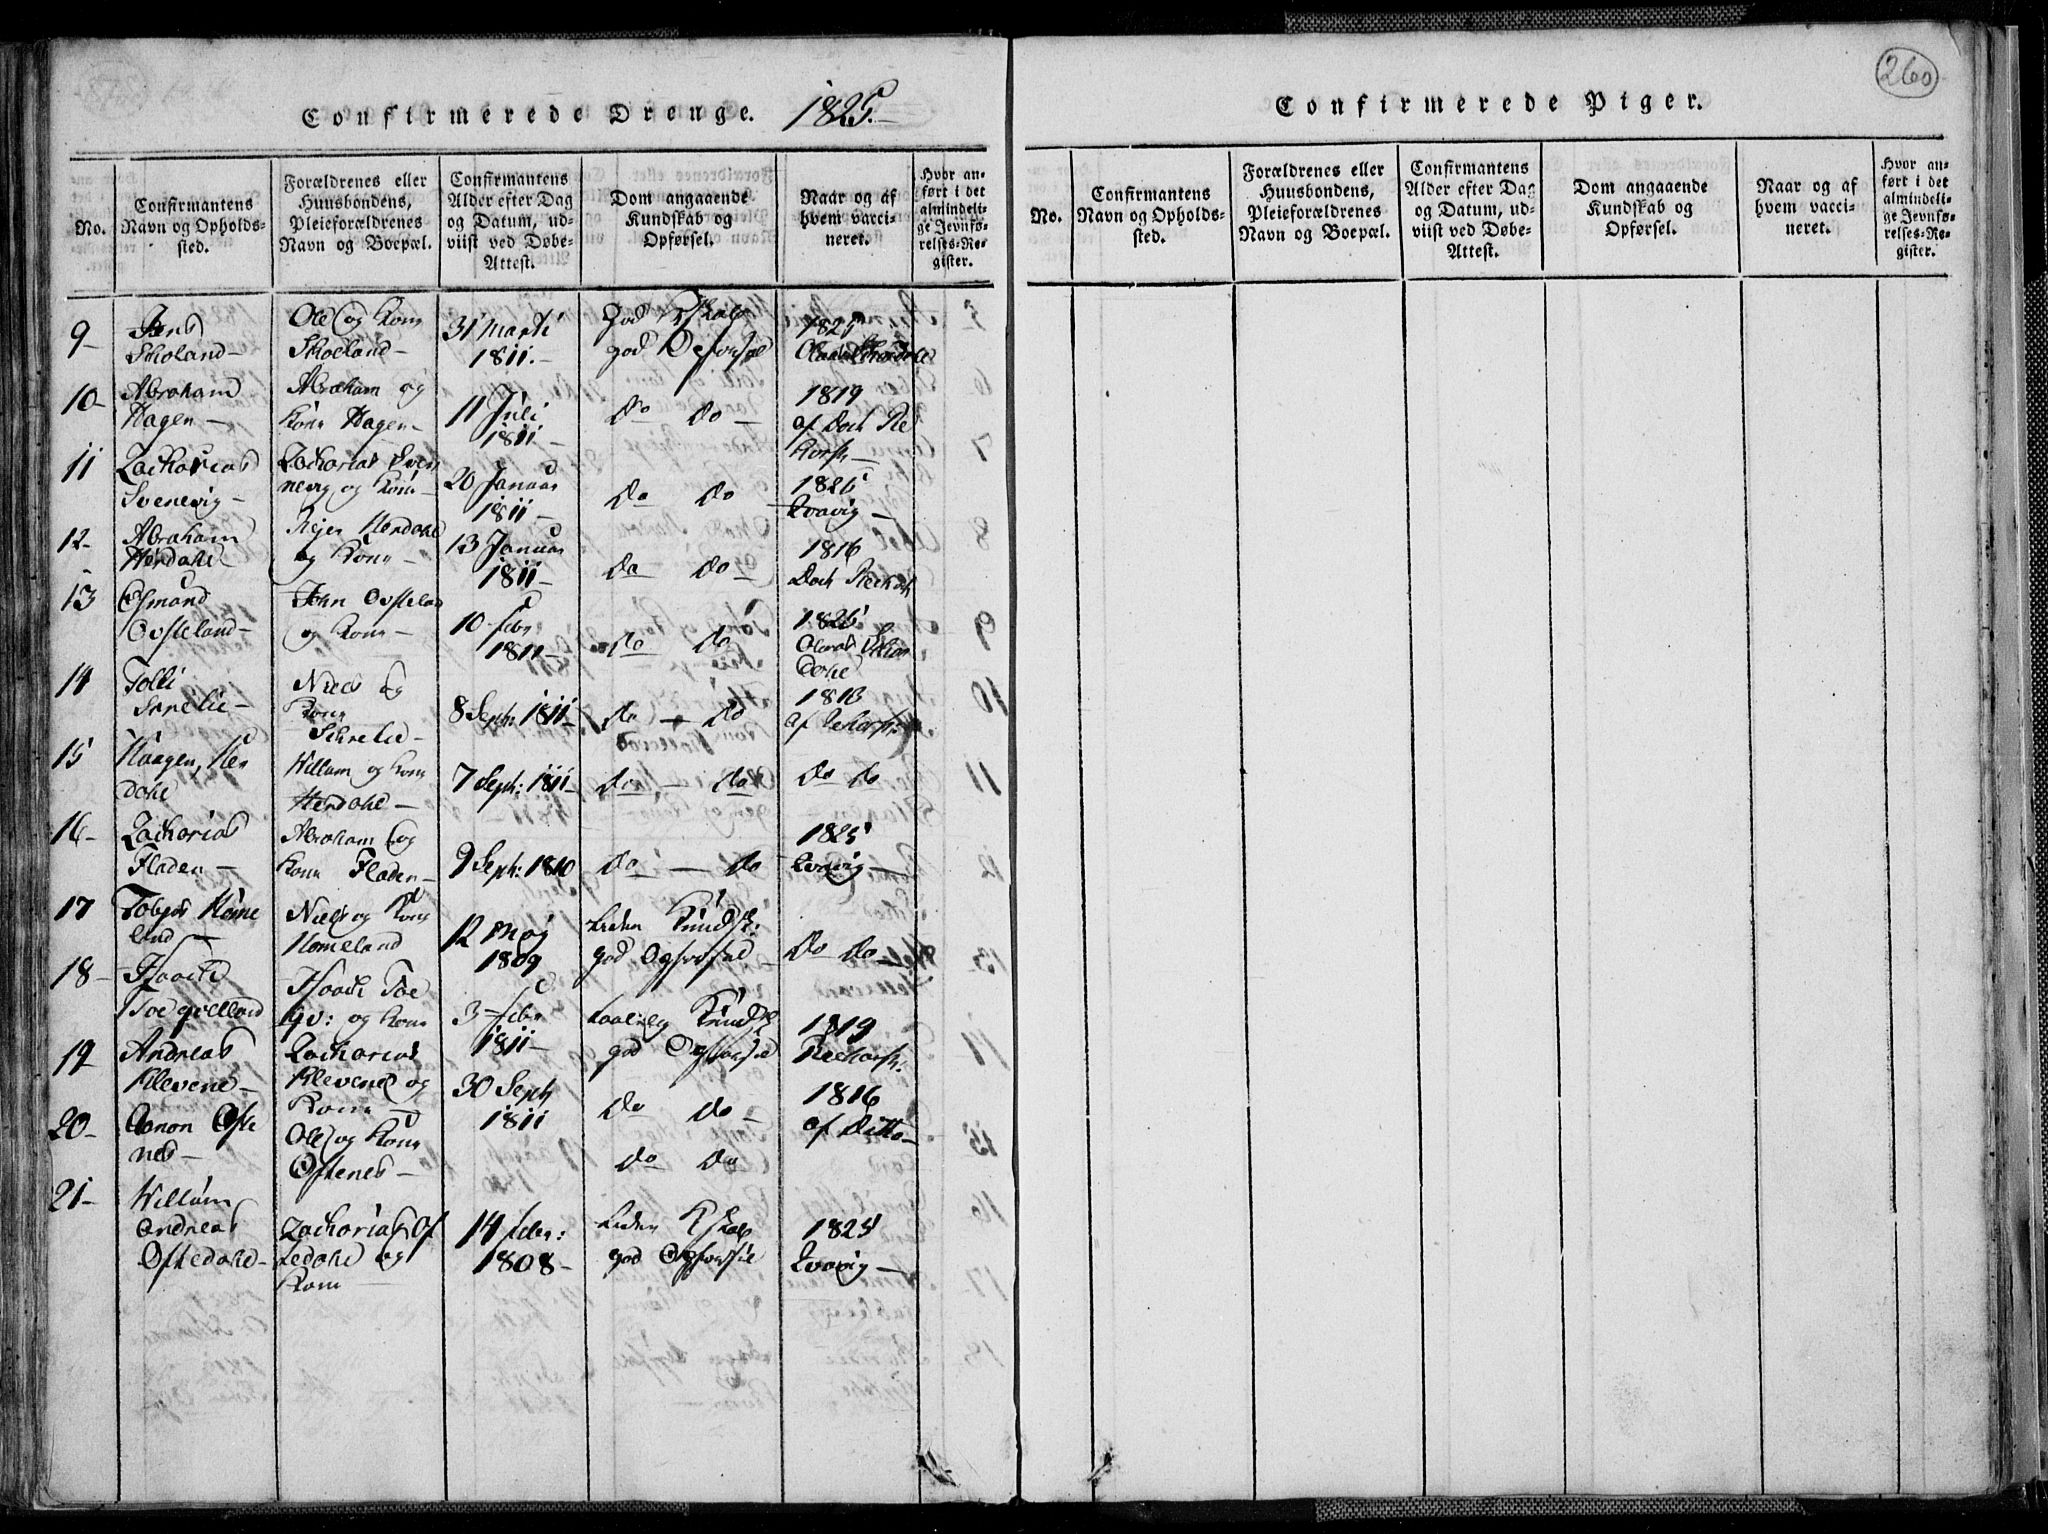 260
Confirmerede Drenge. 1825.
No.
Confirmantens
Navn og Opholds-
sted.
Forældrenes eller
Huusbondens,
Pleieforældrenes
Navn og Boepæl.
Confirmantens
Alder efter Dag
og Datum, ud-
viist ved Døbe-
Attest.
Dom angaaende
Kundskab og
Opførsel.
Naar og af
hvem vacci-
neret.
Hvor an-
ført i det
almindeli-
ge Jevnfø-
relses-Re-
gister.
9-
Jens
Skoland-
Ole og Kone
Skoeland-
31 Marti
1811.-
god Kskab
god Opførsel
1825
10-
Abraham
Hagen-
Abraham og
Kone Hagen-
11 Juli
1811-
do do-
1819
af Doct Re
Korsh-
11
Zacharias
Svenevig-
Zacharias Sven
nevig og Kone-
20 Januar
1811-
do do
1825
Qvavig-
12-
Abraham
Herdahl-
Rejer Herdahl
og Kone-
13 Januar
1811-
do do-
1816
Doct
13
Osmund
Ovsteland-
John Ovsteland
og Kone-
10 febr
1811-
do do
1825
14
Tolli
Niels og
Kone
8 Septr: 1811-
do - do
1813
af
15
Haagen Her
dahl
Willum og Kone
Herdahl-
7 Septr: 1811-
do - do
do do
16-
Zacharias
Fladen-
Abraham og
Kone Fladen-
9 Septr: 1810
do - do
1825
Qvavig-
17
Home
land-
Niels og Kone
Homeland
12 Maj
1809
Liden Kundsk:
god Opførsel
do do-
18-
og Kone
3 febr
1811-
Kundsk
god Opførsel
1819
19-
Andreas
Klevene-
Zacharias
Klevene og
Kone-
30 Septr
1811
do do-
1816
af Ditto-
20-
Aanon Ofte
nes-
Ole og Kone
Oftenes-
do do
21-
Willum
Andreas
Oftedahl-
Zacharias Of
tedahl og
Kone-
14 febr:
1808-
Liden Kskab
god Opførsel
1825
Qvavig-
Confirmerede Piger.
No.
Confirmantens
Navn og Opholds-
sted.
Forældrenes eller
Huusbondens,
Pleieforældrenes
Navn og Boepæl.
Confirmantens
Alder efter Dag
og Datum, ud-
viist ved Døbe-
Attest.
Dom angaaende
Kundskab og
Opførsel.
Naar og af
hvem vacci-
neret.
Hvor an-
ført i det
almindeli-
ge Jevnfø-
relses-Re-
gister.